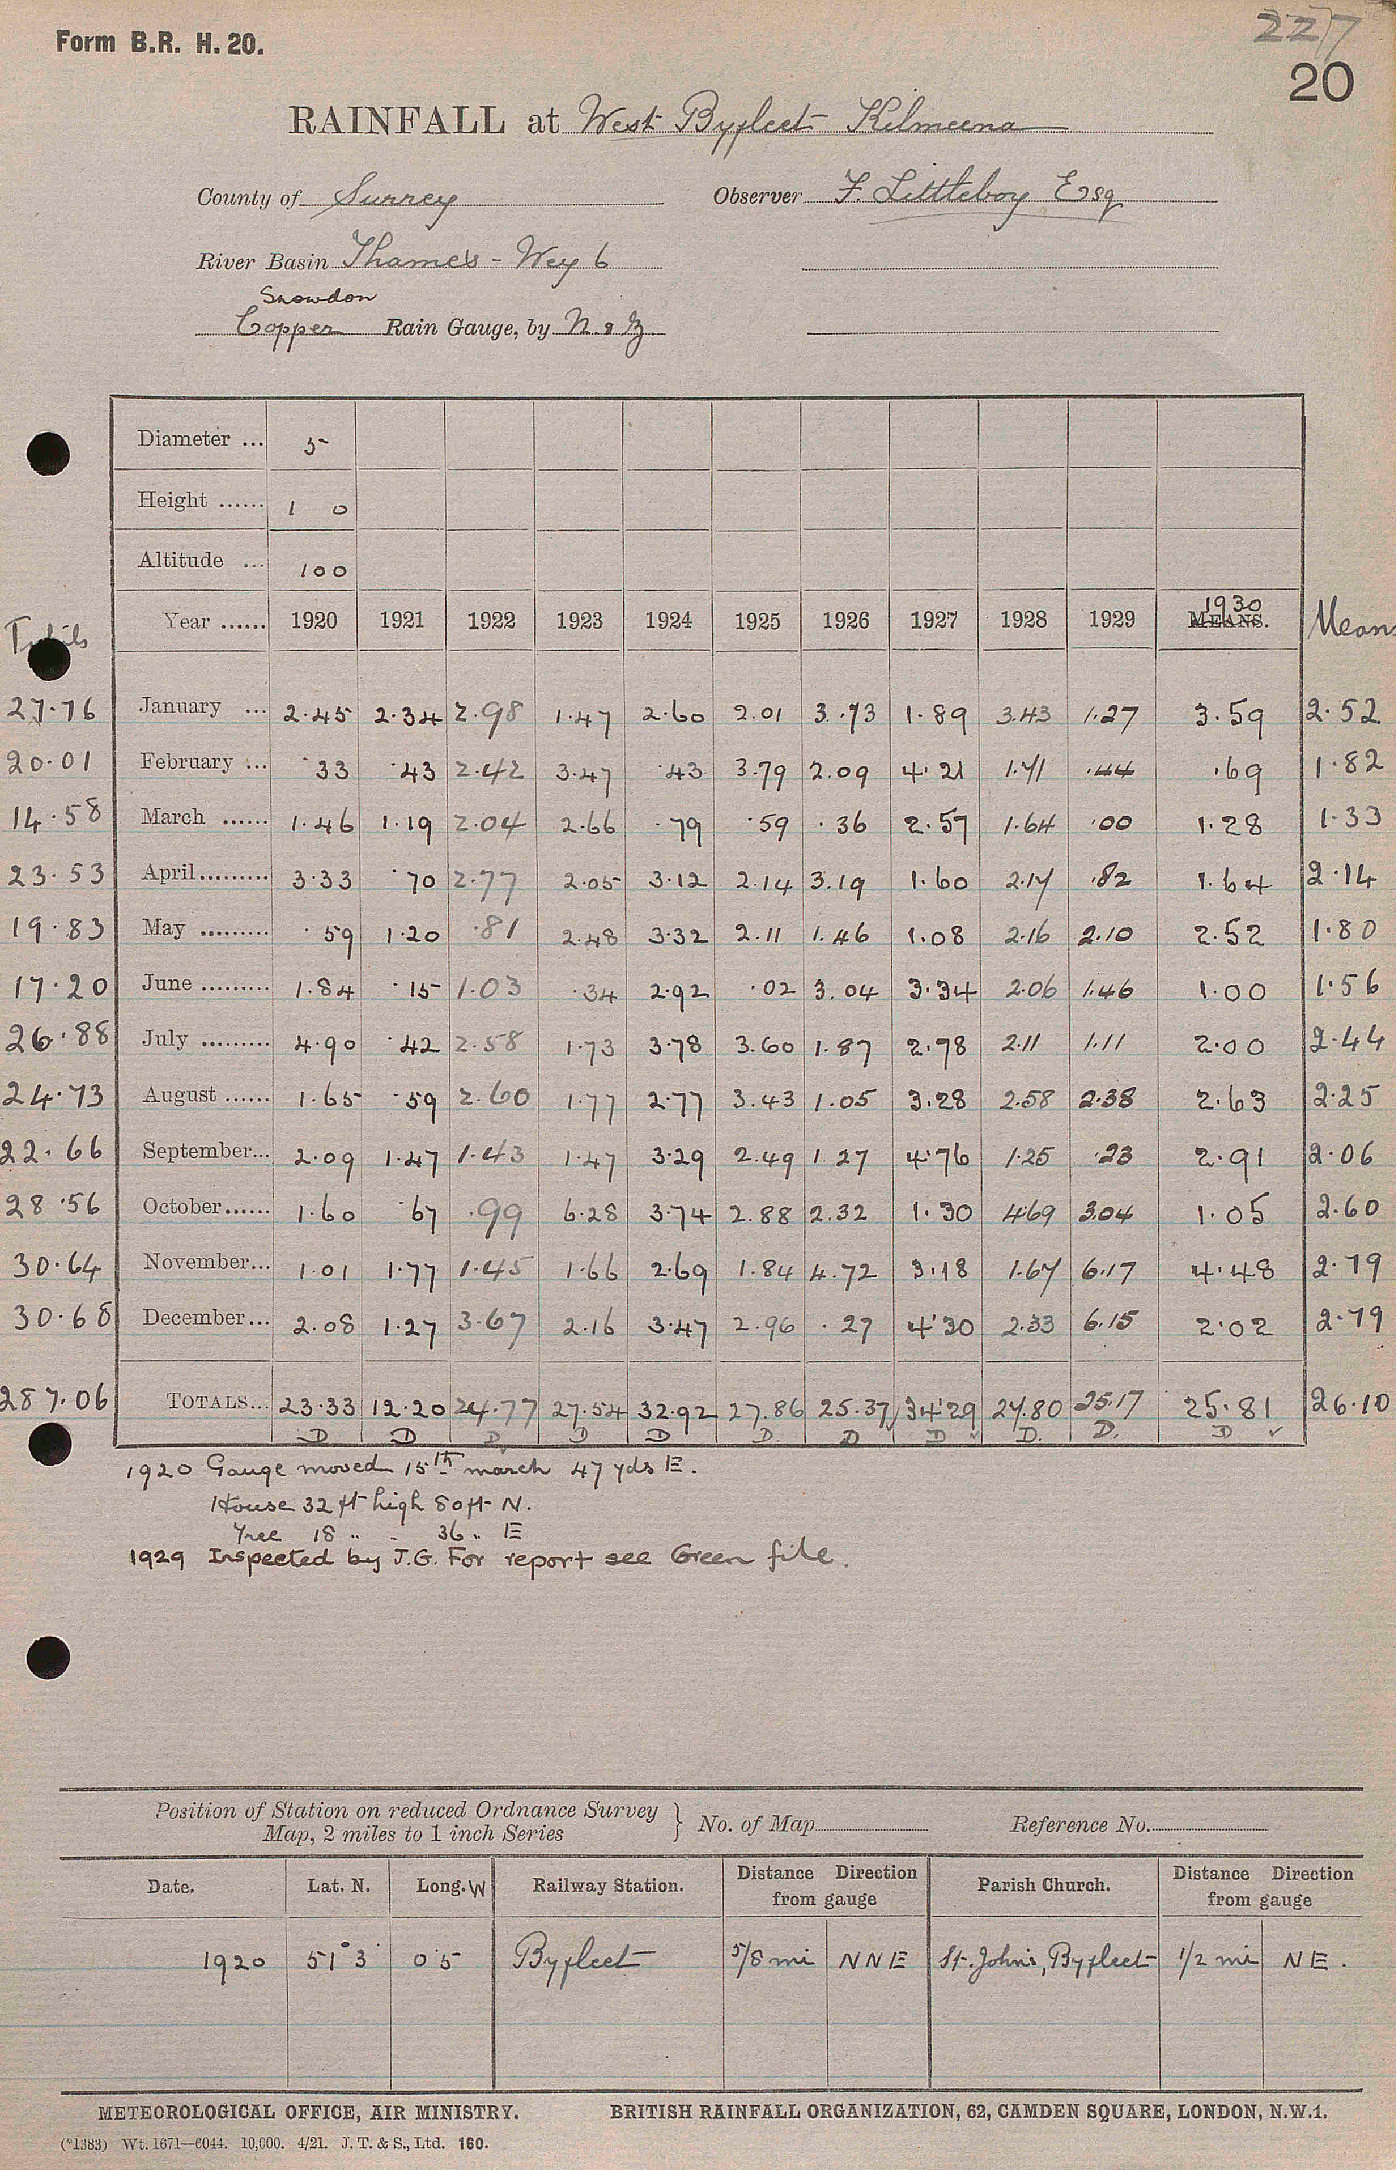 Form B.R. H. 20.
227
20
RAINFALL at West Byfleet Kilmeena
County of Surrey Observer F. Littleboy Esq
River Basin Thames - Wey 6
Snowdon
Copper Rain Gauge, by N & Z
Diameter ... 5
Height ...... 1 0
Altitude ... 100
Totals Year ...... 1920 1921 1922 1923 1924 1925 1926 1927 1928 1929 1930 MEANS. Means
27.76 January ... 2.45 2.34 2.98 1.47 2.60 2.01 3.73 1.89 3.43 1.27 3.59 2.52
20.01 February ... .33 .43 2.42 3.47 .43 3.79 2.09 4.21 1.71 .44 .69 1.82
14.58 March ...... 1.46 1.19 2.04 2.66 .79 .59 .36 2.57 1.64 .00 1.28 1.33
23.53 April ......... 3.33 .70 2.77 2.05 3.12 2.14 3.19 1.60 2.17 .82 1.64 2.14
19.83 May ......... .59 1.20 .81 2.48 3.32 2.11 1.46 1.08 2.16 2.10 2.52 1.80
17.20 June ......... 1.84 .15 1.03 .34 2.92 .02 3.04 3.34 2.06 1.46 1.00 1.56
26.88 July ......... 4.90 .42 2.58 1.73 3.78 3.60 1.87 2.78 2.11 1.11 2.00 2.44
24.73 August ...... 1.65 .59 2.60 1.77 2.77 3.43 1.05 3.28 2.58 2.38 2.63 2.25
22.66 September... 2.09 1.47 1.43 1.47 3.29 2.49 1.27 4.76 1.25 .23 2.91 2.06
28.56 October...... 1.60 .67 .99 6.28 3.74 2.88 2.32 1.30 4.69 3.04 1.05 2.60
30.64 November... 1.01 1.77 1.45 1.66 2.69 1.84 4.72 3.18 1.67 6.17 4.48 2.79
30.68 December... 2.08 1.27 3.67 2.16 3.47 2.96 .27 4.30 2.33 6.15 2.02 2.79
287.06 TOTALS... 23.33 12.20 24.77 27.54 32.92 27.86 25.37 34.29 27.80 25.17 25.81 26.10
D D D D D D. D D ✓ D. D. D ✓
1920 Gauge moved 15th march 47 yds E.
House 32 ft high 80 ft N.
Tree 18 " - 36 " E
1929 Inspected by J.G. For report see Green file.
Position of Station on reduced Ordnance Survey
Map, 2 miles to 1 inch Series } No. of Map Reference No.
Date. Lat. N. Long. W Railway Station. Distance Direction from gauge Parish Church. Distance Direction from gauge
1920 51° 3' 0 5 Byfleet 5/8 mi NNE St. John's, Byfleet 1/2 mi NE.
METEOROLOGICAL OFFICE, AIR MINISTRY. BRITISH RAINFALL ORGANIZATION, 62, CAMDEN SQUARE, LONDON, N.W.1.
(*1383) Wt. 1671—6044. 10,000. 4/21. J. T. & S., Ltd. 160.